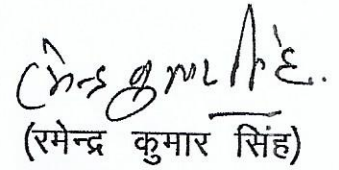 (रमेन्द्र कुमार सिंह)